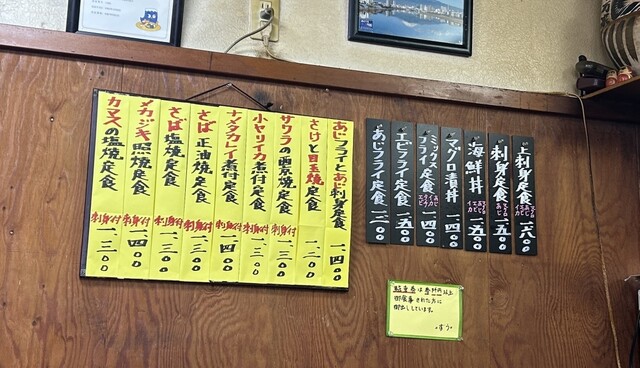 あじフライとあじ刺身定食 一、四〇〇
さけと目玉焼定食 一、二〇〇
サワラの西京焼定食 刺身付 一、三〇〇
小ヤリイカ煮付定食 刺身付 一、三〇〇
ナメタカレイ煮付定食 刺身付 一、四〇〇
さば正油焼定食 刺身付 一、三〇〇
さば塩焼定食 刺身付 一、三〇〇
メカジキ照焼定食 刺身付 一、四〇〇
カマスの塩焼定食 刺身付 一、三〇〇
上刺身定食 一、六〇〇
刺身定食 一、五〇〇
海鮮丼 一、五〇〇
マグロ漬丼 一、四〇〇
ミックスフライ定食 一、四〇〇
エビフライ定食 一、五〇〇
あじフライ定食 一、二〇〇
以上
御食事された方に
御出ししています。